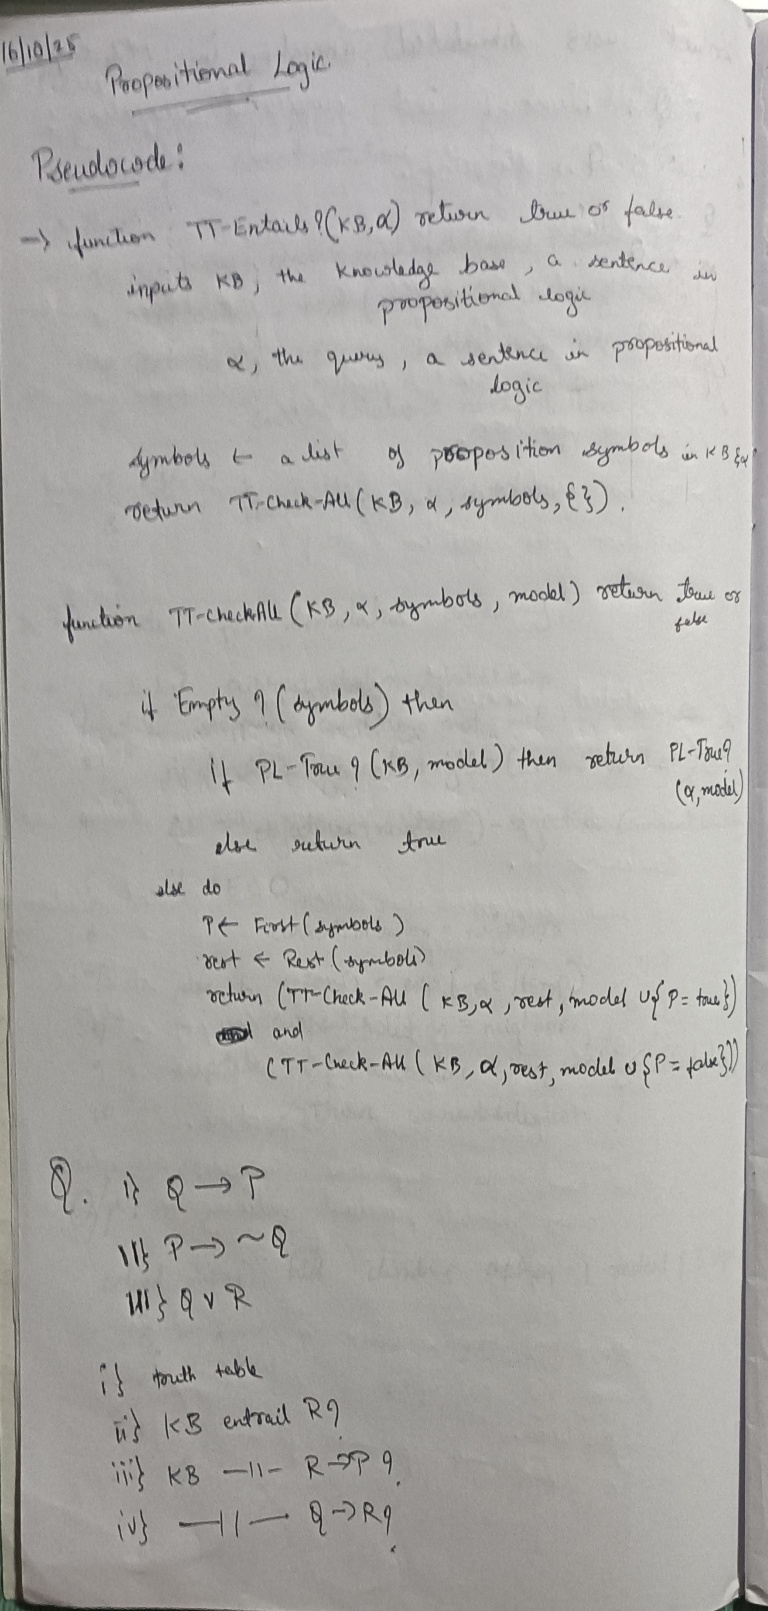 16/10/25
Propositional Logic.
Pseudocode:
→ function TT-Entails?(KB,α) return true or false.
inputs KB, the knowledge base, a sentence in
propositional logic
α, the query, a sentence in propositional
logic
symbols ← a list of proposition symbols in KB & α
return TT-Check-All(KB, α, symbols, {}).
function TT-checkAll (KB, α, symbols, model) return true or
false
if Empty? (symbols) then
if PL-True? (KB, model) then return PL-True?
(α, model)
else return true
else do
P ← First(symbols)
rest ← Rest(symbols)
return (TT-Check-All (KB, α, rest, model ∪ {P = true})
and
(TT-Check-All (KB, α, rest, model ∪ {P = false}))
Q. I} Q → P
II} P → ~Q
III} Q ∨ R
i} truth table
ii} KB entrail R?
iii} KB —11— R→P?
iv} —11— Q→R?